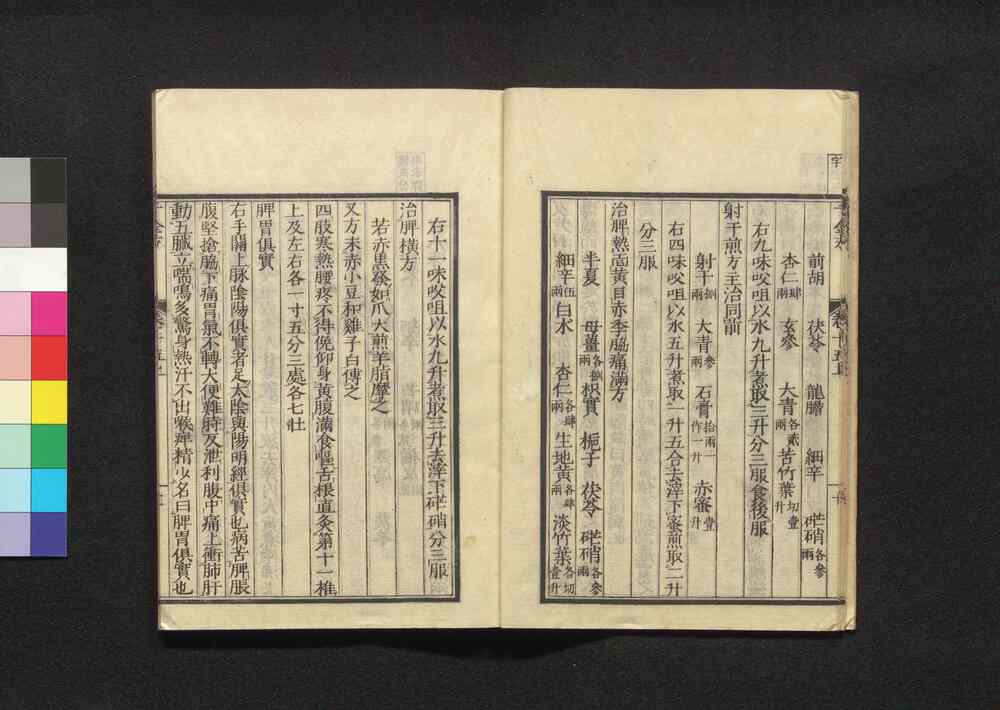 前胡 茯苓 龍膽 細辛 芒硝各參兩
杏仁肆兩 玄參 大青各貳兩 苦竹葉切壹升
右九味㕮咀以水九升煮取三升分三服食後服
射干煎方主治同前
射干捌兩 大青參兩 石膏拾兩一作一升 赤蜜壹升
右四味㕮咀以水五升煮取一升五合去滓下蜜煎取二升
分三服
治脾熱面黃目赤季脇痛滿方
半夏 母薑各捌兩 枳實 梔子 茯苓 芒硝各參兩
細辛伍兩 白朮 杏仁各肆兩 生地黃各肆兩 淡竹葉各切壹升
右十一味㕮咀以水九升煮取三升去滓下芒硝分三服
治脾橫方
若赤黑發如爪大煎羊脂摩之
又方末赤小豆和雞子白傅之
四肢寒熱腰疼不得俛仰身黃腹滿食嘔舌根直灸第十一椎
上及左右各一寸五分三處各七壯
脾胃俱實
右手關上脉陰陽俱實者足太陰與陽明經俱實也病苦脾脹
腹堅搶脇下痛胃氣不轉大便難時反泄利腹中痛上衝肺肝
動五臟立喘鳴多驚身熱汗不出喉痺精少名曰脾胃俱實也